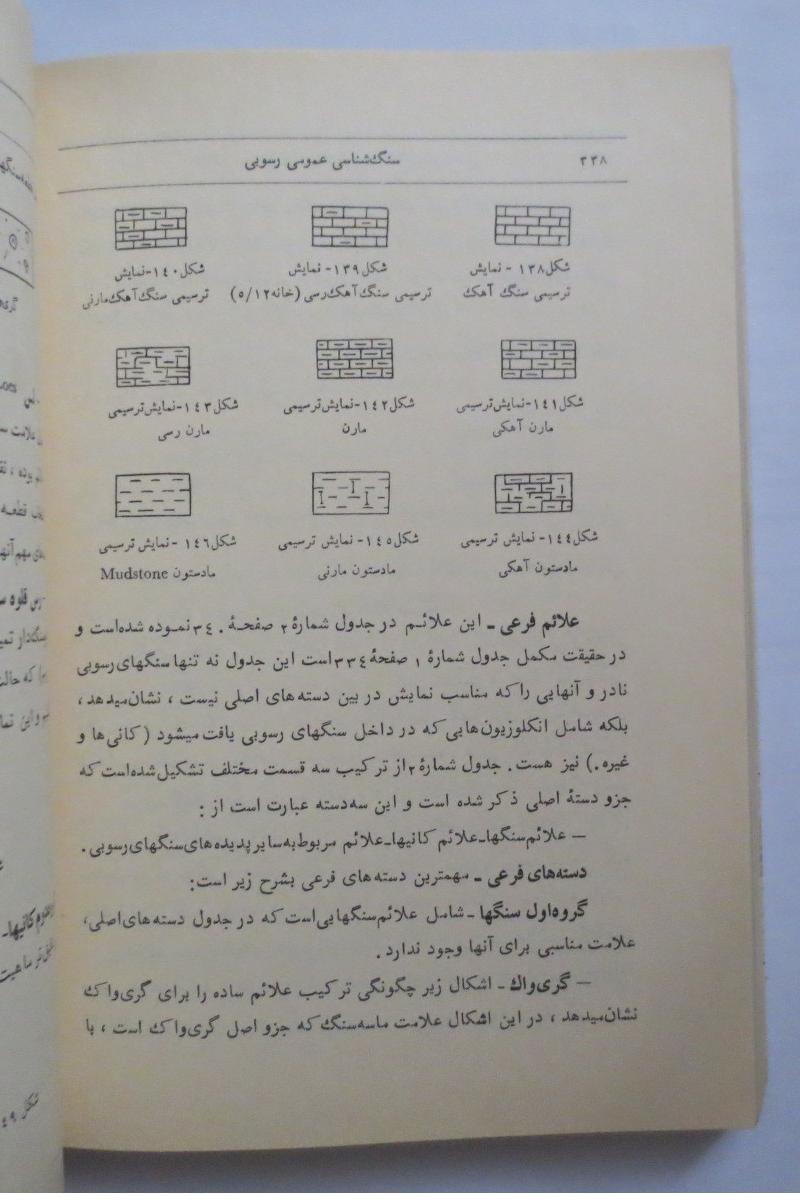 ۳۳۸ سنگ‌شناسی عمومی رسوبی
شکل ۱۳۸ - نمایش
ترسیمی سنگ آهک
شکل ۱۳۹ - نمایش
ترسیمی سنگ آهک رسی (خانه ۵/۱۲)
شکل ۱٤۰ - نمایش
ترسیمی سنگ آهک مارنی
شکل ۱٤۱ - نمایش ترسیمی
مارن آهکی
شکل ۱٤۲ - نمایش ترسیمی
مارن
شکل ۱٤۳ - نمایش ترسیمی
مارن رسی
شکل ۱٤٤ - نمایش ترسیمی
مادستون آهکی
شکل ۱٤۵ - نمایش ترسیمی
مادستون مارنی
شکل ۱٤٦ - نمایش ترسیمی
مادستون Mudstone
علائم فرعی ـ این علائم در جدول شمارهٔ ۲ صفحهٔ ۳٤۰ نموده شده‌است و
در حقیقت مکمل جدول شمارهٔ ۱ صفحهٔ ۳۳٤ است این جدول نه تنها سنگهای رسوبی
نادر و آنهایی را که مناسب نمایش در بین دسته‌های اصلی نیست ، نشان‌میدهد،
بلکه شامل انکلوزیون‌هایی که در داخل سنگهای رسوبی یافت میشود (کانی‌ها و
غیره.) نیز هست. جدول شمارهٔ ۲ از ترکیب سه قسمت مختلف تشکیل شده‌است که
جزو دستهٔ اصلی ذکر شده است و این سه‌دسته عبارت است از :
— علائم سنگها ـ علائم کانیها ـ علائم مربوط به سایر پدیده‌های سنگهای رسوبی.
دسته‌های فرعی ـ مهمترین دسته‌های فرعی بشرح زیر است:
گروه‌اول سنگها ـ شامل علائم سنگهایی‌است که در جدول دسته‌های اصلی،
علامت مناسبی برای آنها وجود ندارد.
— گری‌واک ـ اشکال زیر چگونگی ترکیب علائم ساده را برای گری‌واک
نشان‌میدهد ، در این اشکال علامت ماسه‌سنگ که جزو اصل گری‌واک است ، با